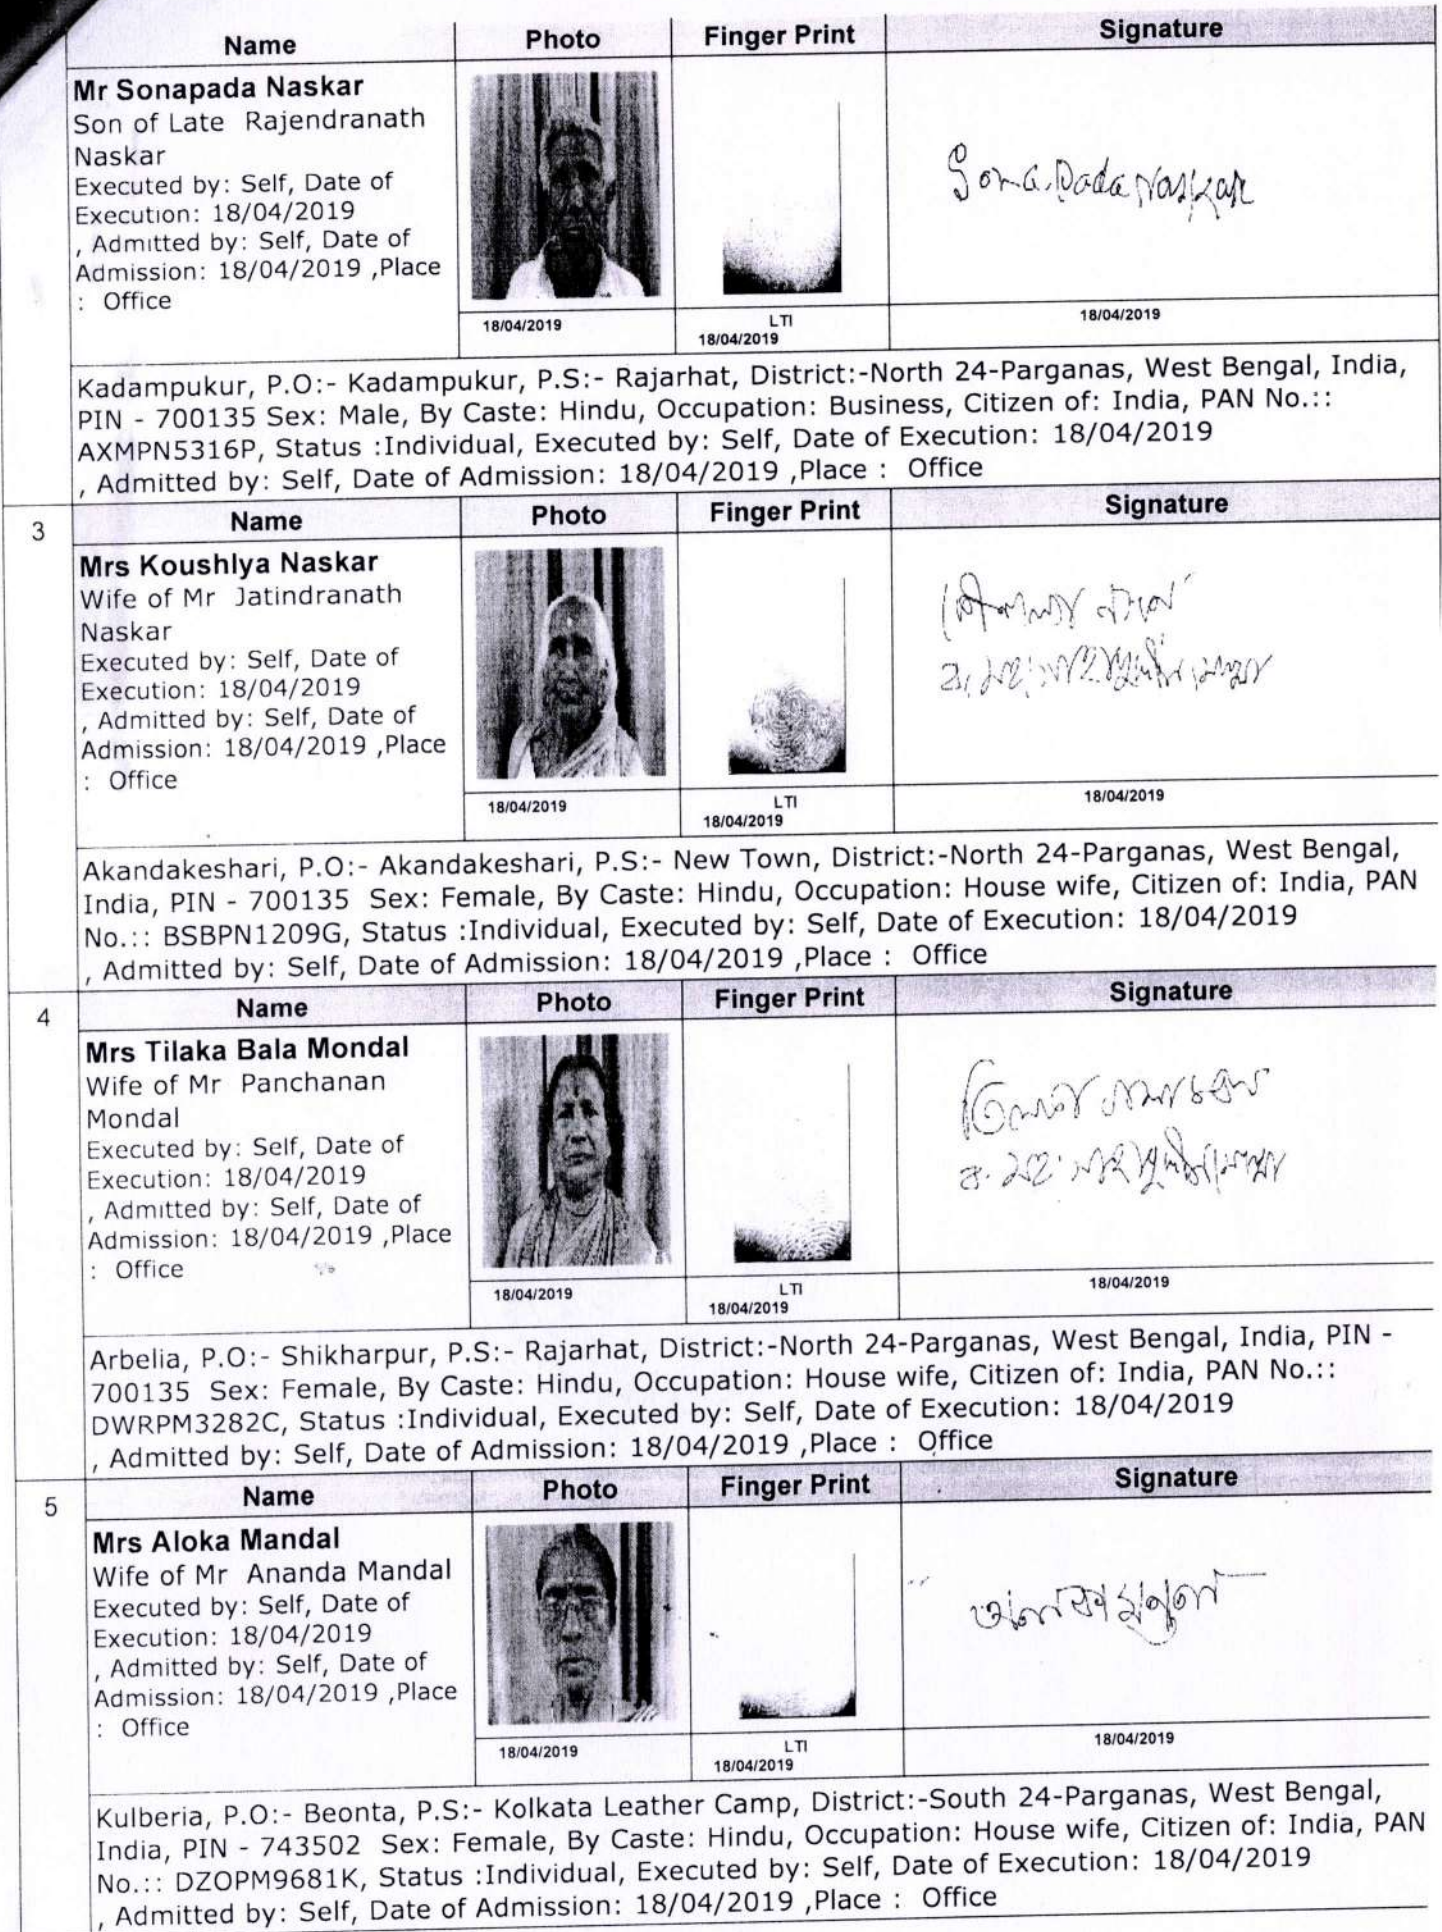 Name Photo Finger Print Signature
Mr Sonapada Naskar
Son of Late Rajendranath
Naskar
Executed by: Self, Date of
Execution: 18/04/2019
, Admitted by: Self, Date of
Admission: 18/04/2019 ,Place
: Office
Sona Pada Naskar
18/04/2019 LTI 18/04/2019
18/04/2019
Kadampukur, P.O:- Kadampukur, P.S:- Rajarhat, District:-North 24-Parganas, West Bengal, India,
PIN - 700135 Sex: Male, By Caste: Hindu, Occupation: Business, Citizen of: India, PAN No.::
AXMPN5316P, Status :Individual, Executed by: Self, Date of Execution: 18/04/2019
, Admitted by: Self, Date of Admission: 18/04/2019 ,Place : Office
3 Name Photo Finger Print Signature
Mrs Koushlya Naskar
Wife of Mr Jatindranath
Naskar
Executed by: Self, Date of
Execution: 18/04/2019
, Admitted by: Self, Date of
Admission: 18/04/2019 ,Place
: Office
18/04/2019 LTI 18/04/2019
18/04/2019
Akandakeshari, P.O:- Akandakeshari, P.S:- New Town, District:-North 24-Parganas, West Bengal,
India, PIN - 700135 Sex: Female, By Caste: Hindu, Occupation: House wife, Citizen of: India, PAN
No.:: BSBPN1209G, Status :Individual, Executed by: Self, Date of Execution: 18/04/2019
, Admitted by: Self, Date of Admission: 18/04/2019 ,Place : Office
4 Name Photo Finger Print Signature
Mrs Tilaka Bala Mondal
Wife of Mr Panchanan
Mondal
Executed by: Self, Date of
Execution: 18/04/2019
, Admitted by: Self, Date of
Admission: 18/04/2019 ,Place
: Office
18/04/2019 LTI 18/04/2019
18/04/2019
Arbelia, P.O:- Shikharpur, P.S:- Rajarhat, District:-North 24-Parganas, West Bengal, India, PIN -
700135 Sex: Female, By Caste: Hindu, Occupation: House wife, Citizen of: India, PAN No.::
DWRPM3282C, Status :Individual, Executed by: Self, Date of Execution: 18/04/2019
, Admitted by: Self, Date of Admission: 18/04/2019 ,Place : Office
5 Name Photo Finger Print Signature
Mrs Aloka Mandal
Wife of Mr Ananda Mandal
Executed by: Self, Date of
Execution: 18/04/2019
, Admitted by: Self, Date of
Admission: 18/04/2019 ,Place
: Office
অলকা মণ্ডল
18/04/2019 LTI 18/04/2019
18/04/2019
Kulberia, P.O:- Beonta, P.S:- Kolkata Leather Camp, District:-South 24-Parganas, West Bengal,
India, PIN - 743502 Sex: Female, By Caste: Hindu, Occupation: House wife, Citizen of: India, PAN
No.:: DZOPM9681K, Status :Individual, Executed by: Self, Date of Execution: 18/04/2019
, Admitted by: Self, Date of Admission: 18/04/2019 ,Place : Office